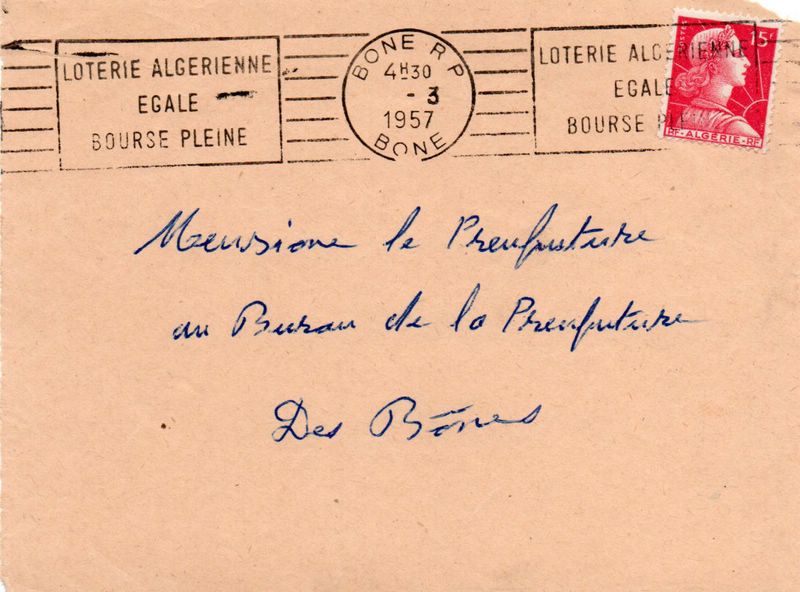 LOTERIE ALGERIENNE
EGALE
BOURSE PLEINE
BONE R P
4H30
- 3
1957
BONE
LOTERIE ALGERIENNE
EGALE
BOURSE PLEINE
POSTES
15F
RF-ALGÉRIE-RF
Mensione le Prenfuture
au Burau de la Prenfuture
Des Bônes